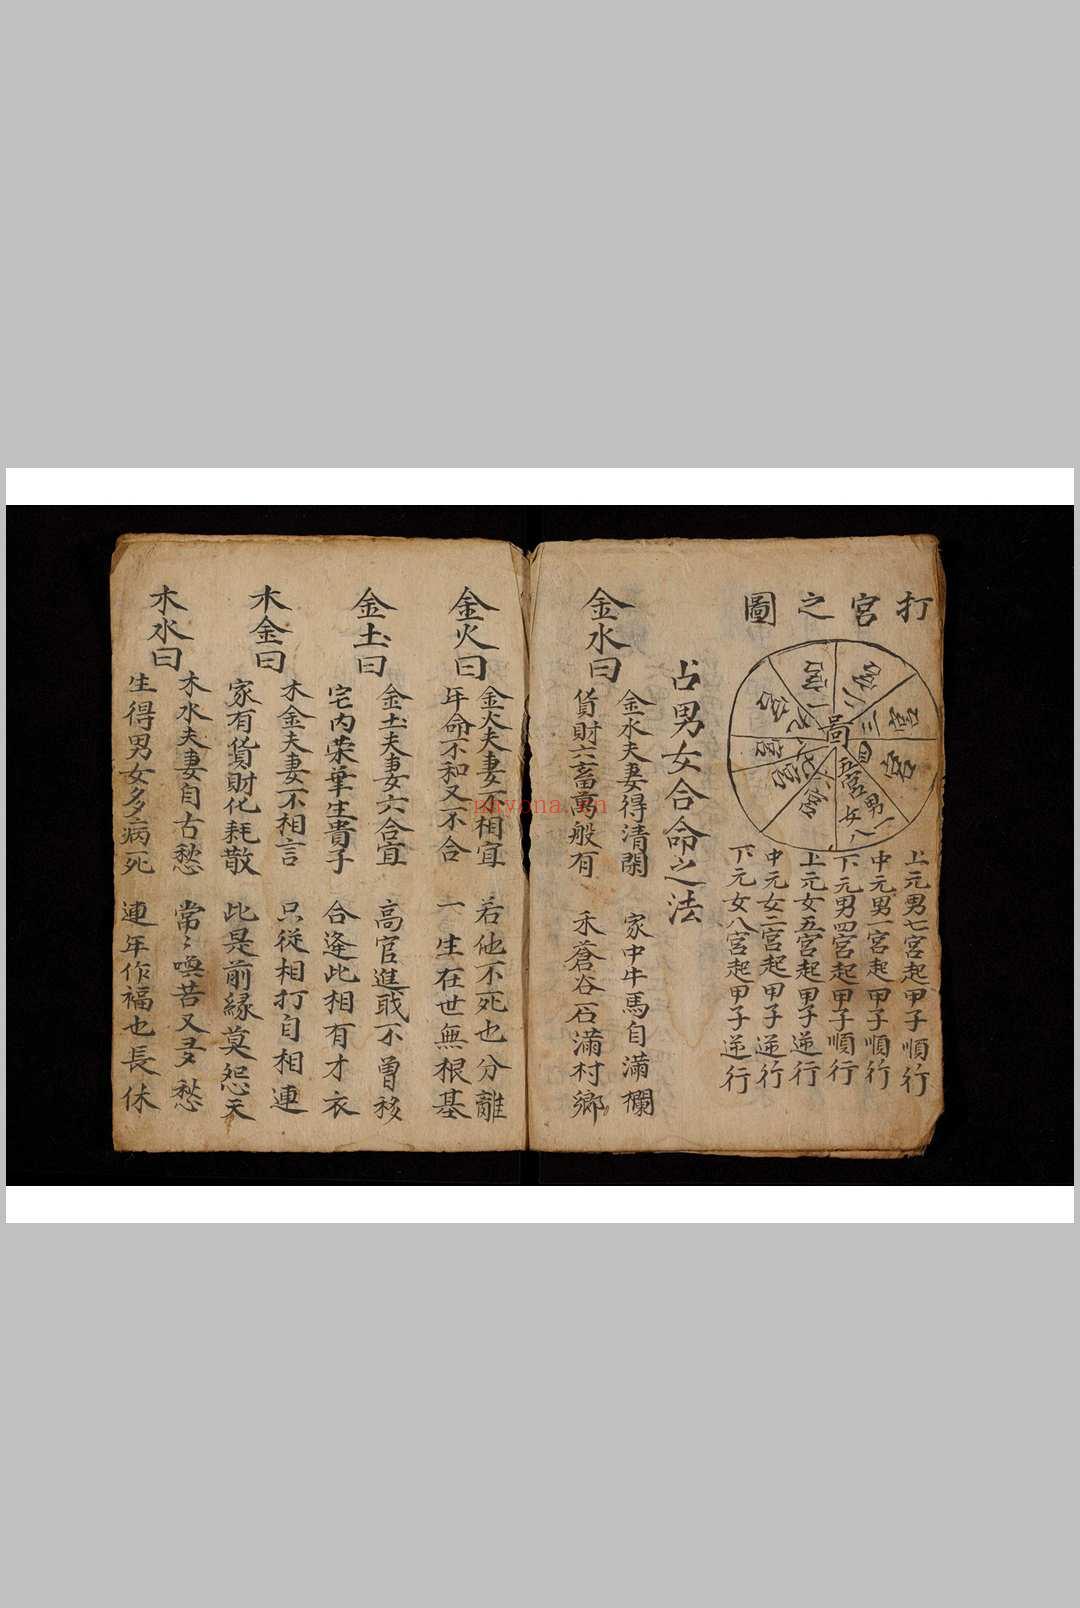 打宮之圖
圖
一宮
二宮
三宮
四宮
五宮 男一 女八
六宮
七宮
八宮
九宮
上元男七宮起甲子順行
中元男一宮起甲子順行
下元男四宮起甲子順行
上元女五宮起甲子逆行
中元女二宮起甲子逆行
下元女八宮起甲子逆行
占男女合命之法
金水曰
金水夫妻得清閑 家中牛馬自滿欄
貨財六畜萬般有 禾蒼谷石滿村鄉
金火曰
金火夫妻不相宜 若他不死也分離
年命不和又不合 一生在世無根基
金土曰
金土夫妻六合宜 高官進戝不曾移
宅内荣華生貴子 合逢此相有才衣
木金曰
木金夫妻不相言 只従相打自相連
家有貨財化耗散 此是前緣莫怨天
木水曰
木水夫妻自古愁 常〻嘆苦又多愁
生得男女多病死 連年作福也長休
nhyona.cn